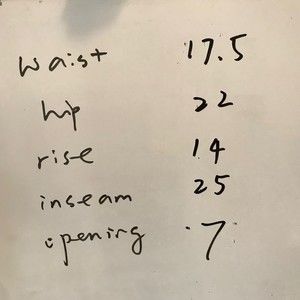 waist 17.5
hip 22
rise 14
inseam 25
opening 7